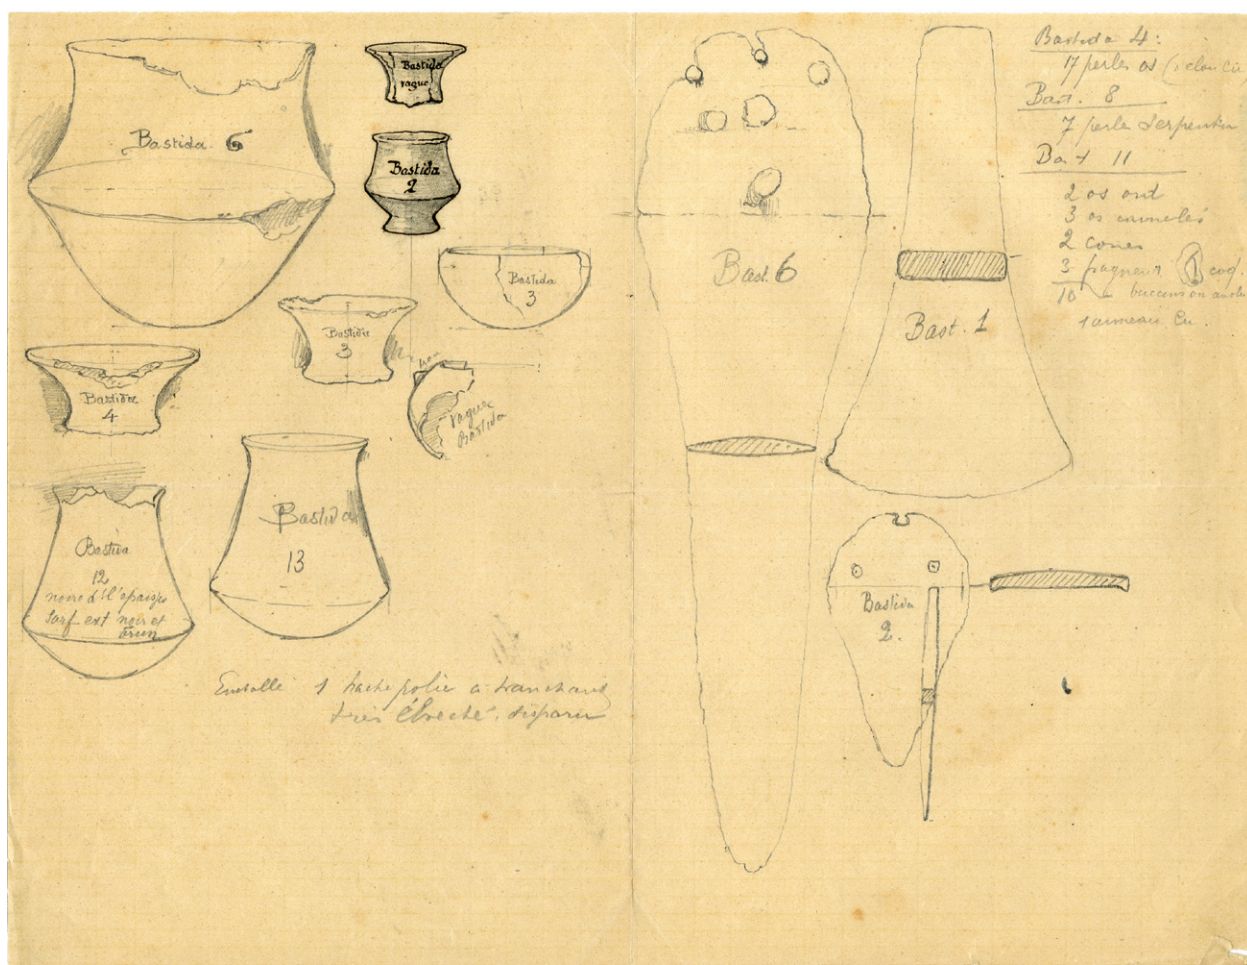 Bastida 6
Bastida
vague
Bastida
2
Bastida
3
Bastida
3
Bastida
4
vague
Bastida
Bastida
12
noire d'1 épaisse
surf est noir et
brun
Bastida
13
1 hache polie a tranchant
très ébreché. disparu
Bast. 6
Bast. 1
Bastida
2.
Bastida 4:
17 perles os (1 clou Cu
Bast. 8
7 perles Serpentin
Bast 11
2 os ond
3 os cannelés
2 cones
3 fragment coq.
10
1 anneau Cu.